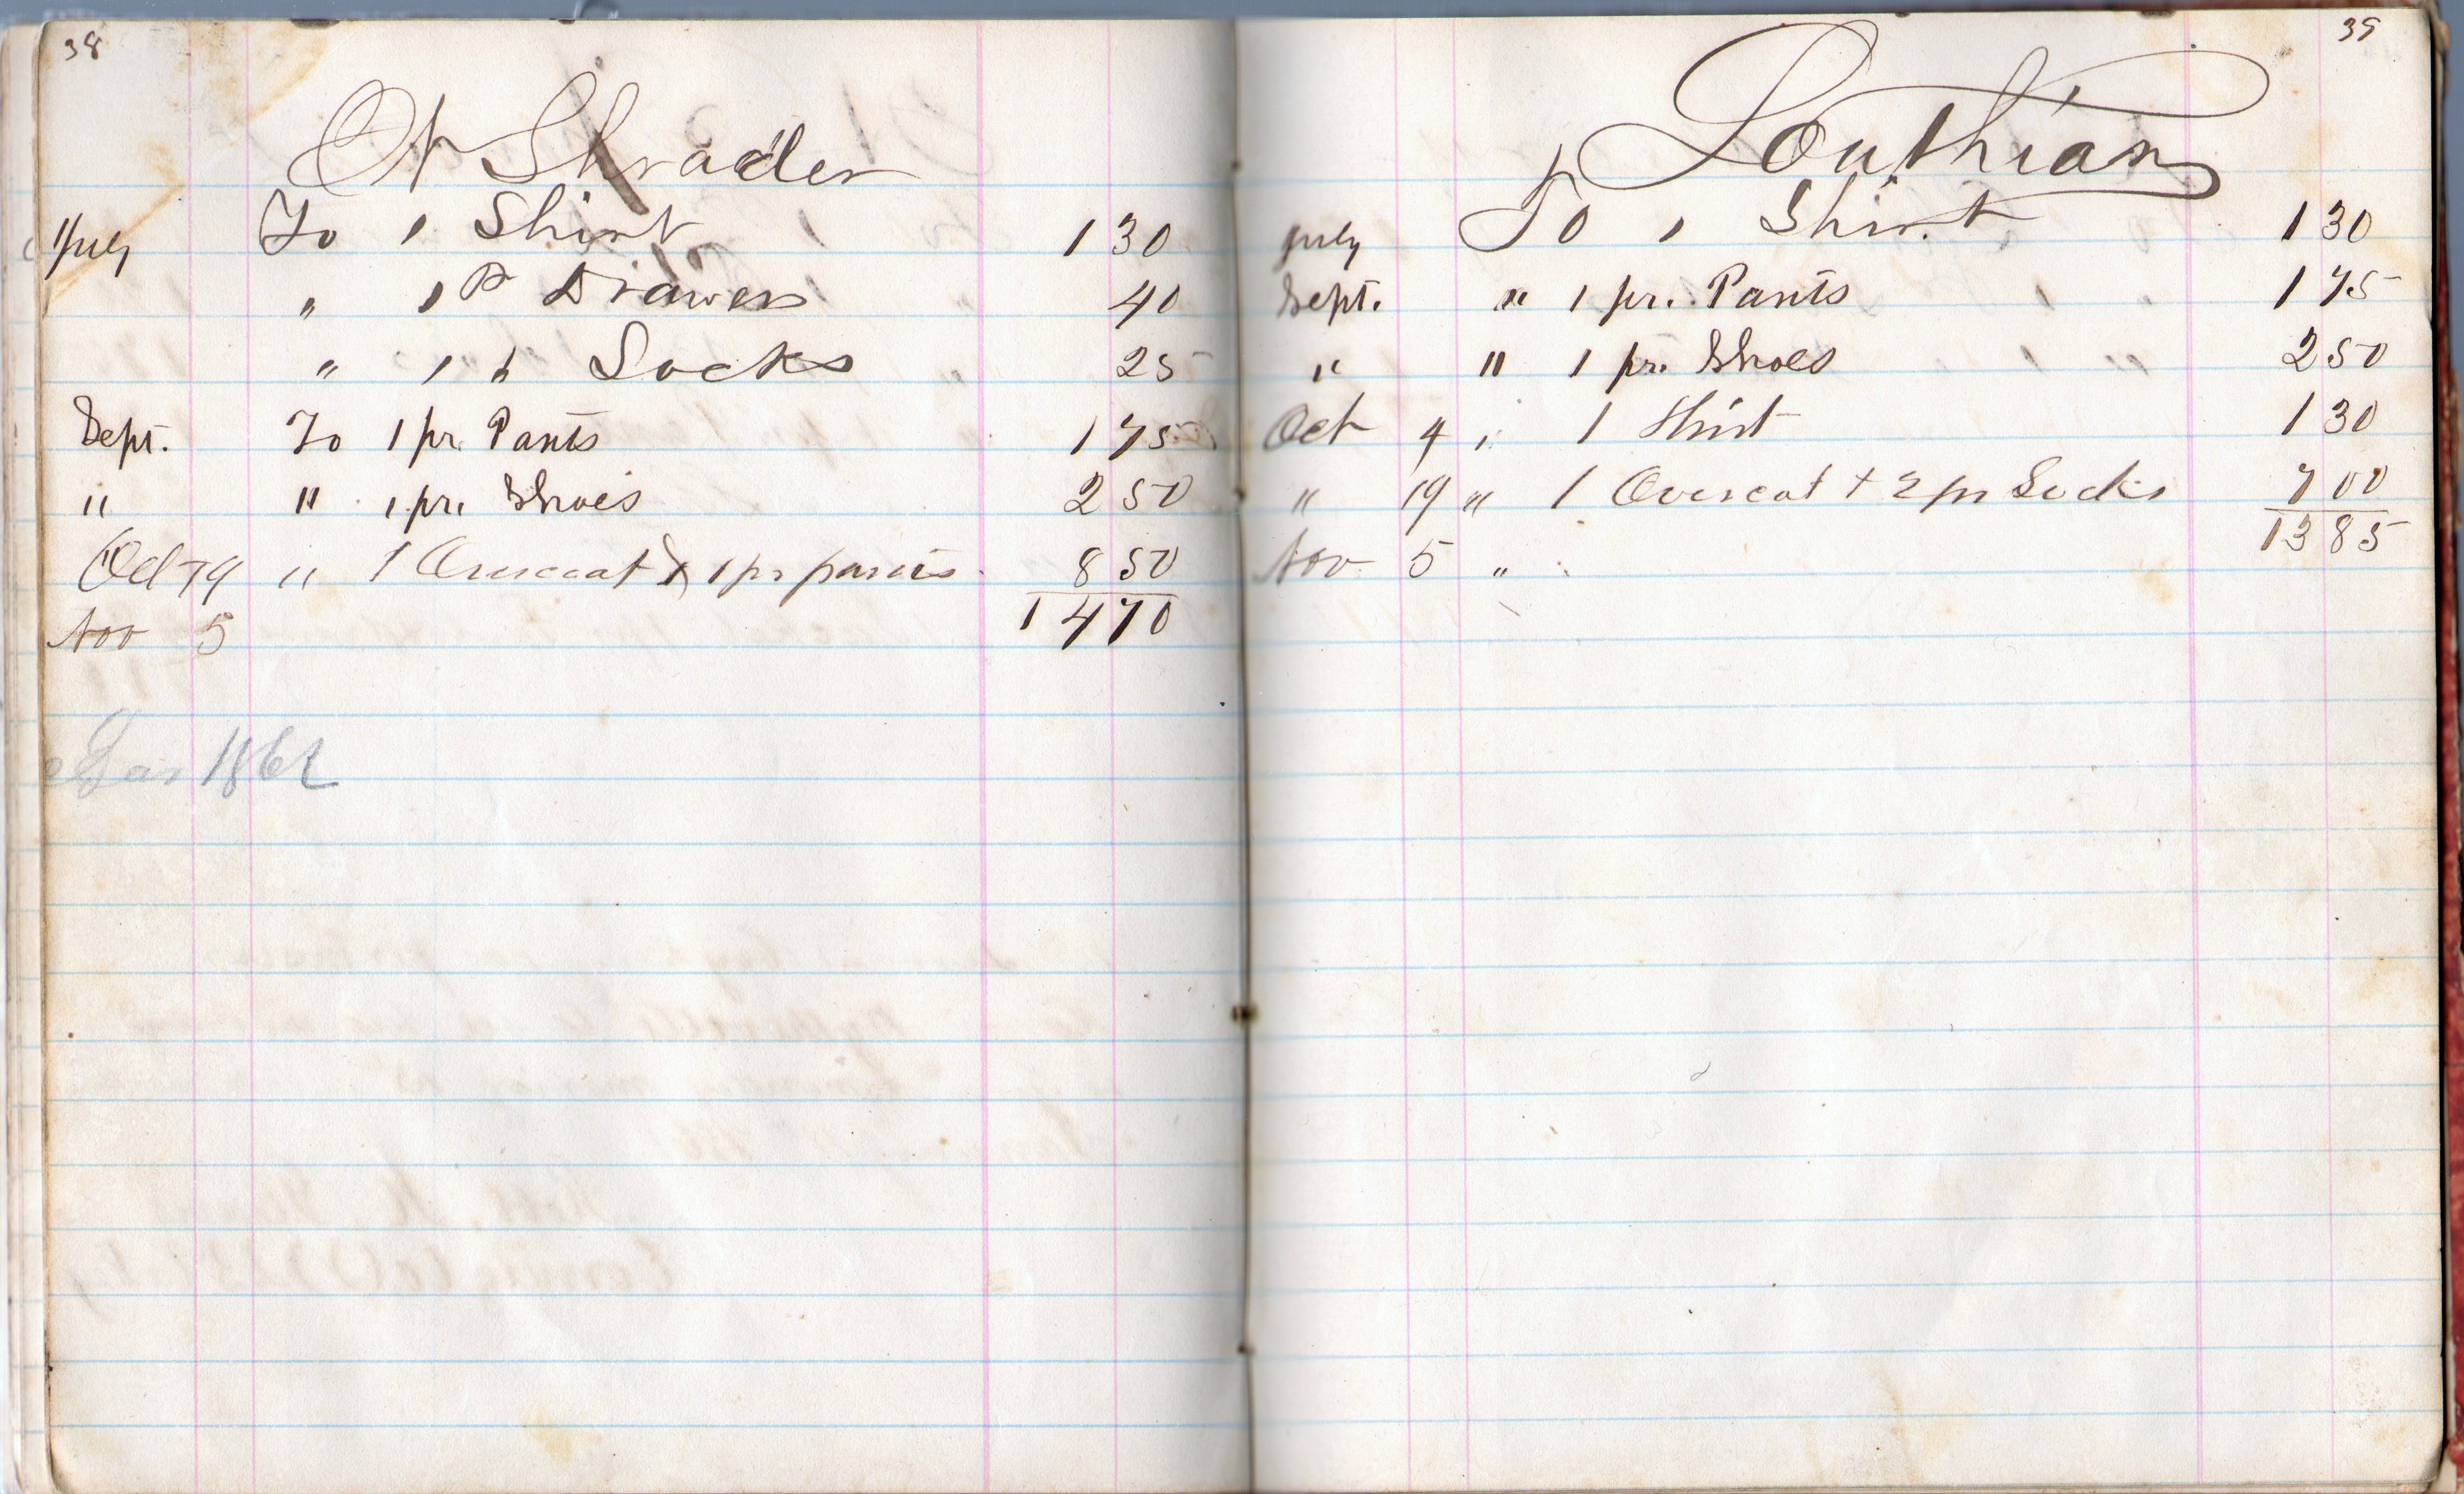 38
Shrader
July To 1 Shirt 1 30
" 1 P Drawers 40
" 1 p Socks 25
Sept. To 1 pr. Pants 1 75
" " 1 pr. Shoes 2 50
Oct 19 " 1 Overcoat & 1 pr pants 8 50
1470
Nov 5
1862
39
Louthian
July To 1 Shirt 1 30
Sept. " 1 pr. Pants 1 75
" " 1 pr. Shoes 2 50
Oct 4 " 1 Shirt 1 30
" 19 " 1 Overcoat + 2 pr Socks 7 00
13 85
Nov 5 "